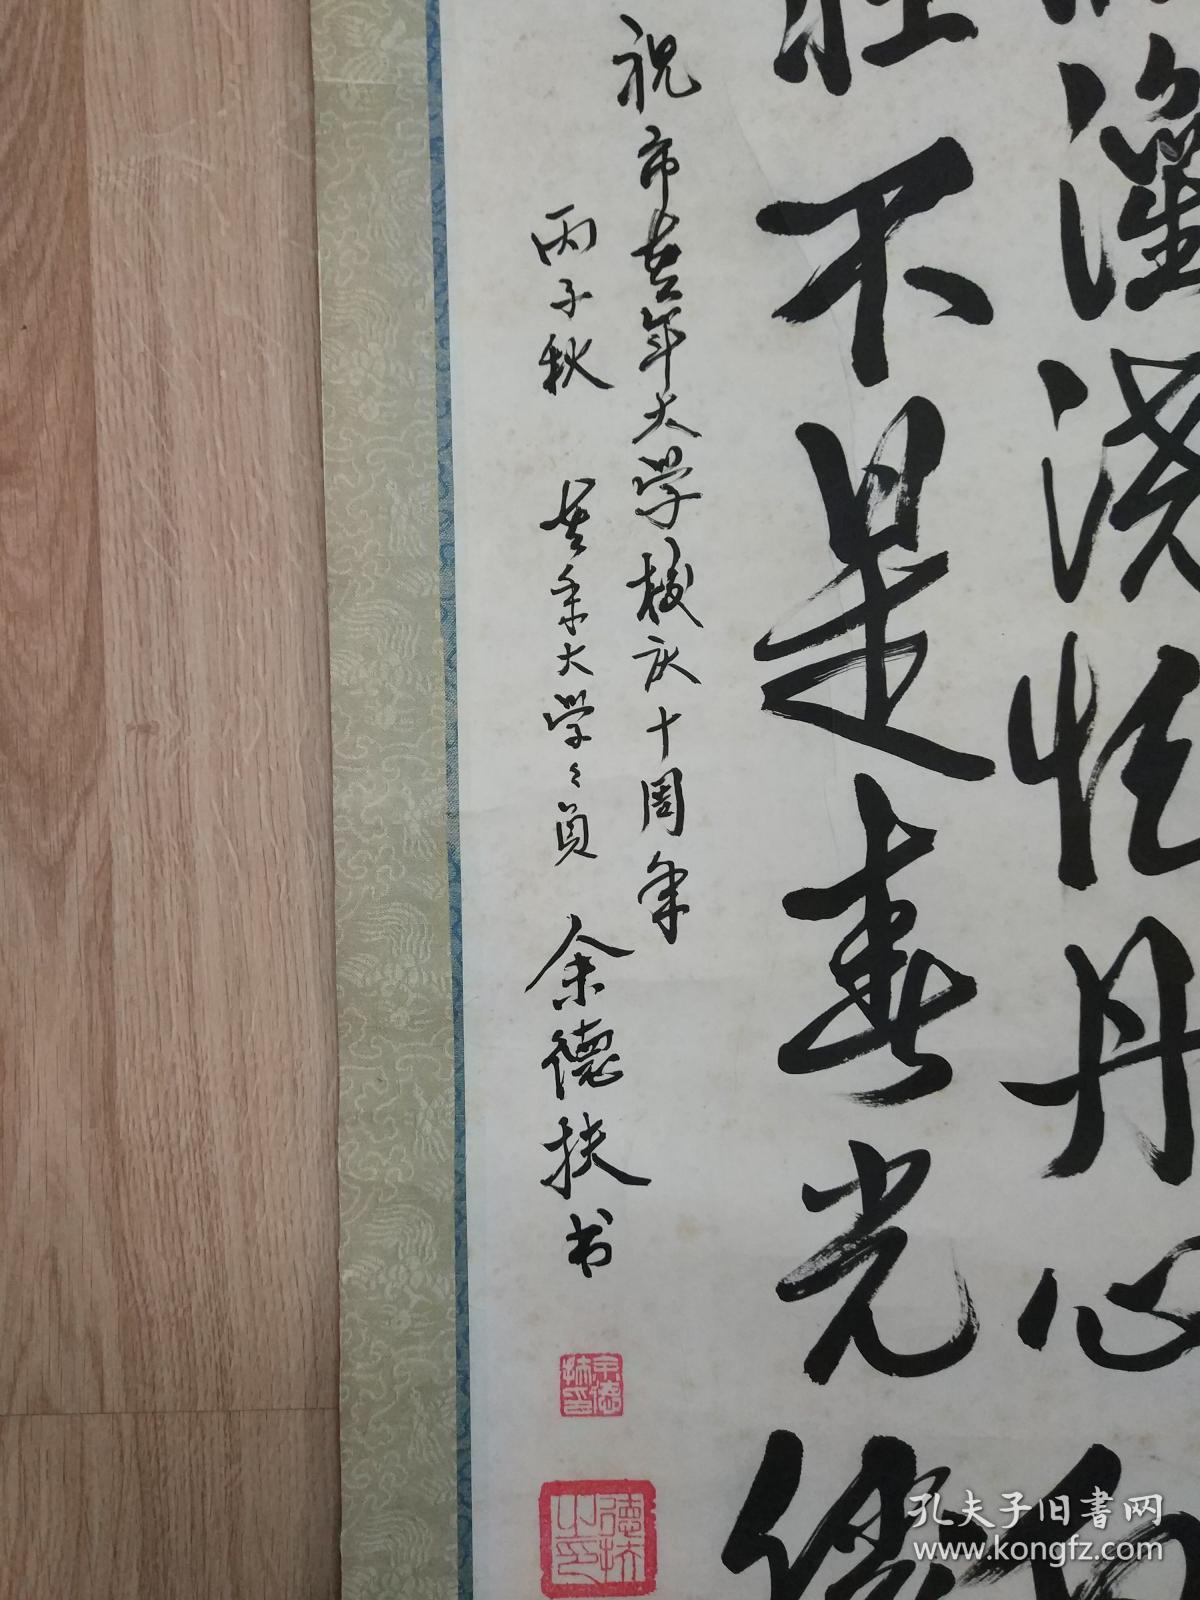 灌浇丹心
不是春光
祝市老年大学校庆十周年
丙子秋 老年大学々员 余德扶书
余德扶印
德扶之印
孔夫子旧书网
www.kongfz.com